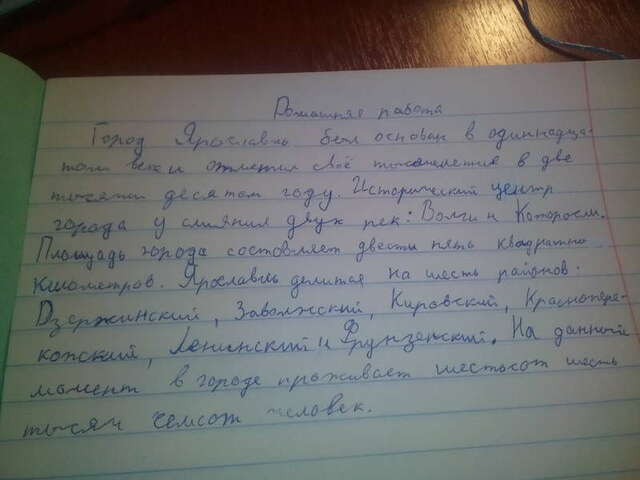 Домашняя работа
Город Ярославль был основан в одиннадца-
том веке и отметил своё тысячелетие в две
тысячи десятом году. Исторический центр
города у слияния двух рек: Волги и Которосли.
Площадь города состовляет двести пять квадратно
километров. Ярославль делится на шесть районов:
Дзержинский, Заволжский, Кировский, Краснопере-
копский, Ленинский и Фрунзенский. На данный
момент в городе проживает шестьсот шесть
тысяч семсот человек.